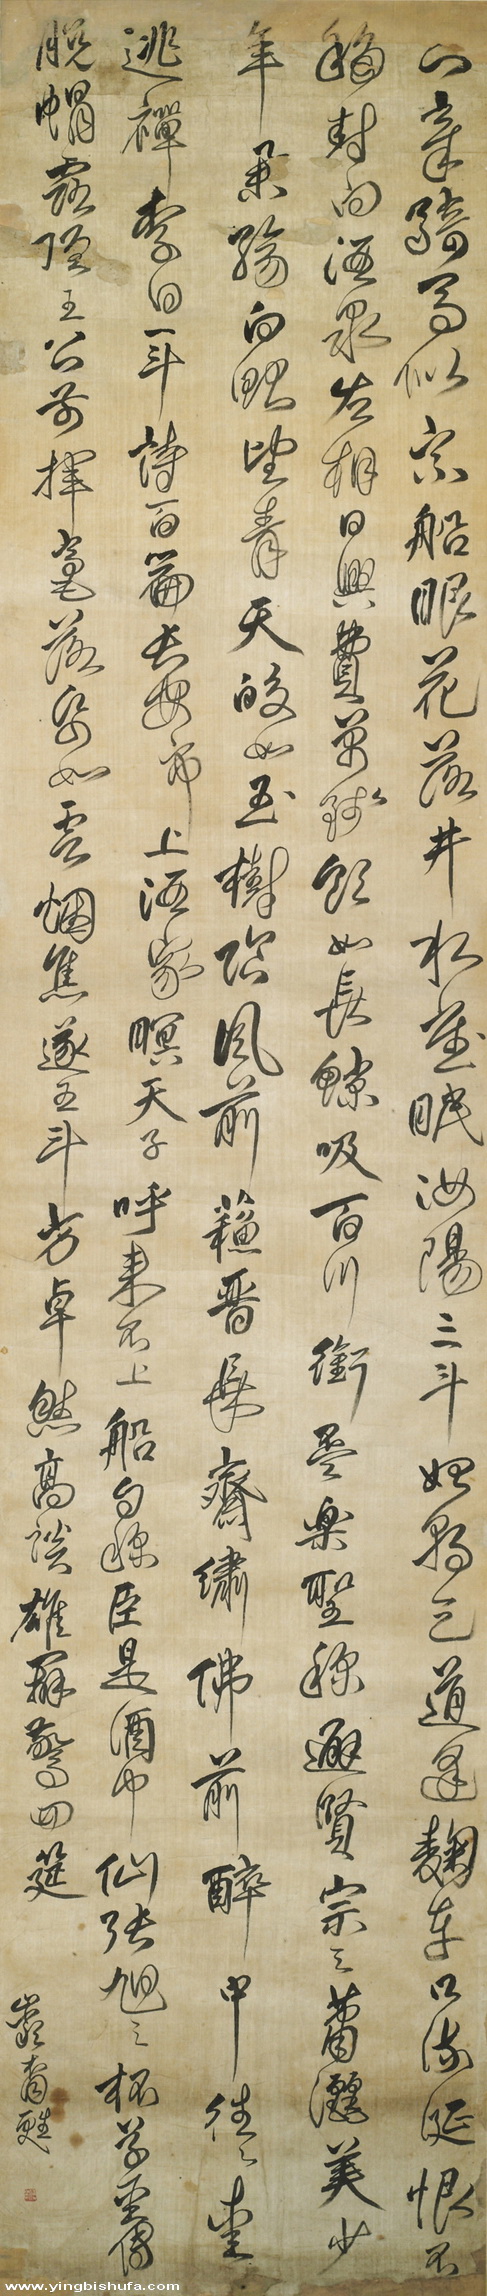 知章騎馬似乘船眼花落井水底眠汝陽三斗始朝天道逢麴車口流涎恨不
移封向酒泉左相日興費萬錢飲如長鯨吸百川銜盃樂聖稱避賢宗之蕭灑美少
年舉觴白眼望青天皎如玉樹臨風前蘇晉長齋繡佛前醉中往々愛
逃禪李白一斗詩百篇長安市上酒家瞑天子呼來不上船自稱臣是酒中仙張旭三杯草聖傳
脫帽露頂王公前揮毫落紙如雲烟焦遂五斗方卓然高談雄辯驚四筵
www.yingbishufa.com